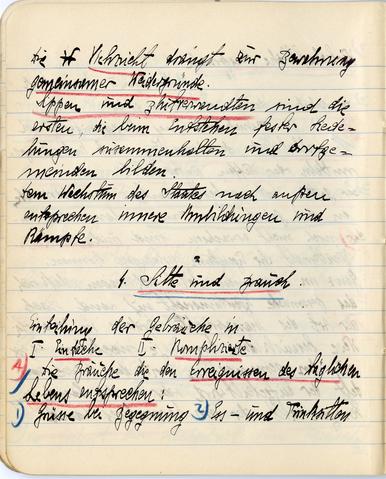 Die Viehzucht drängt zur Bewahrung
gemeinsamer Weidegründe.
Sippen und Blutsverwandten sind die
ersten, die beim Entstehen fester Siede-
lungen zusammenhalten und Dorfge-
meinden bilden.
Dem Wachstum des Staates nach außen
entsprechen innere Umbildungen und
Kämpfe.
4. Sitte und Brauch.
Einteilung der Gebräuche in
I Einfache II Komplizierte
A) Die Bräuche die den Ereignissen des täglichen
Lebens entsprechen:
1) Grüsse bei Begegnung 2) Ess- und Trinksitten